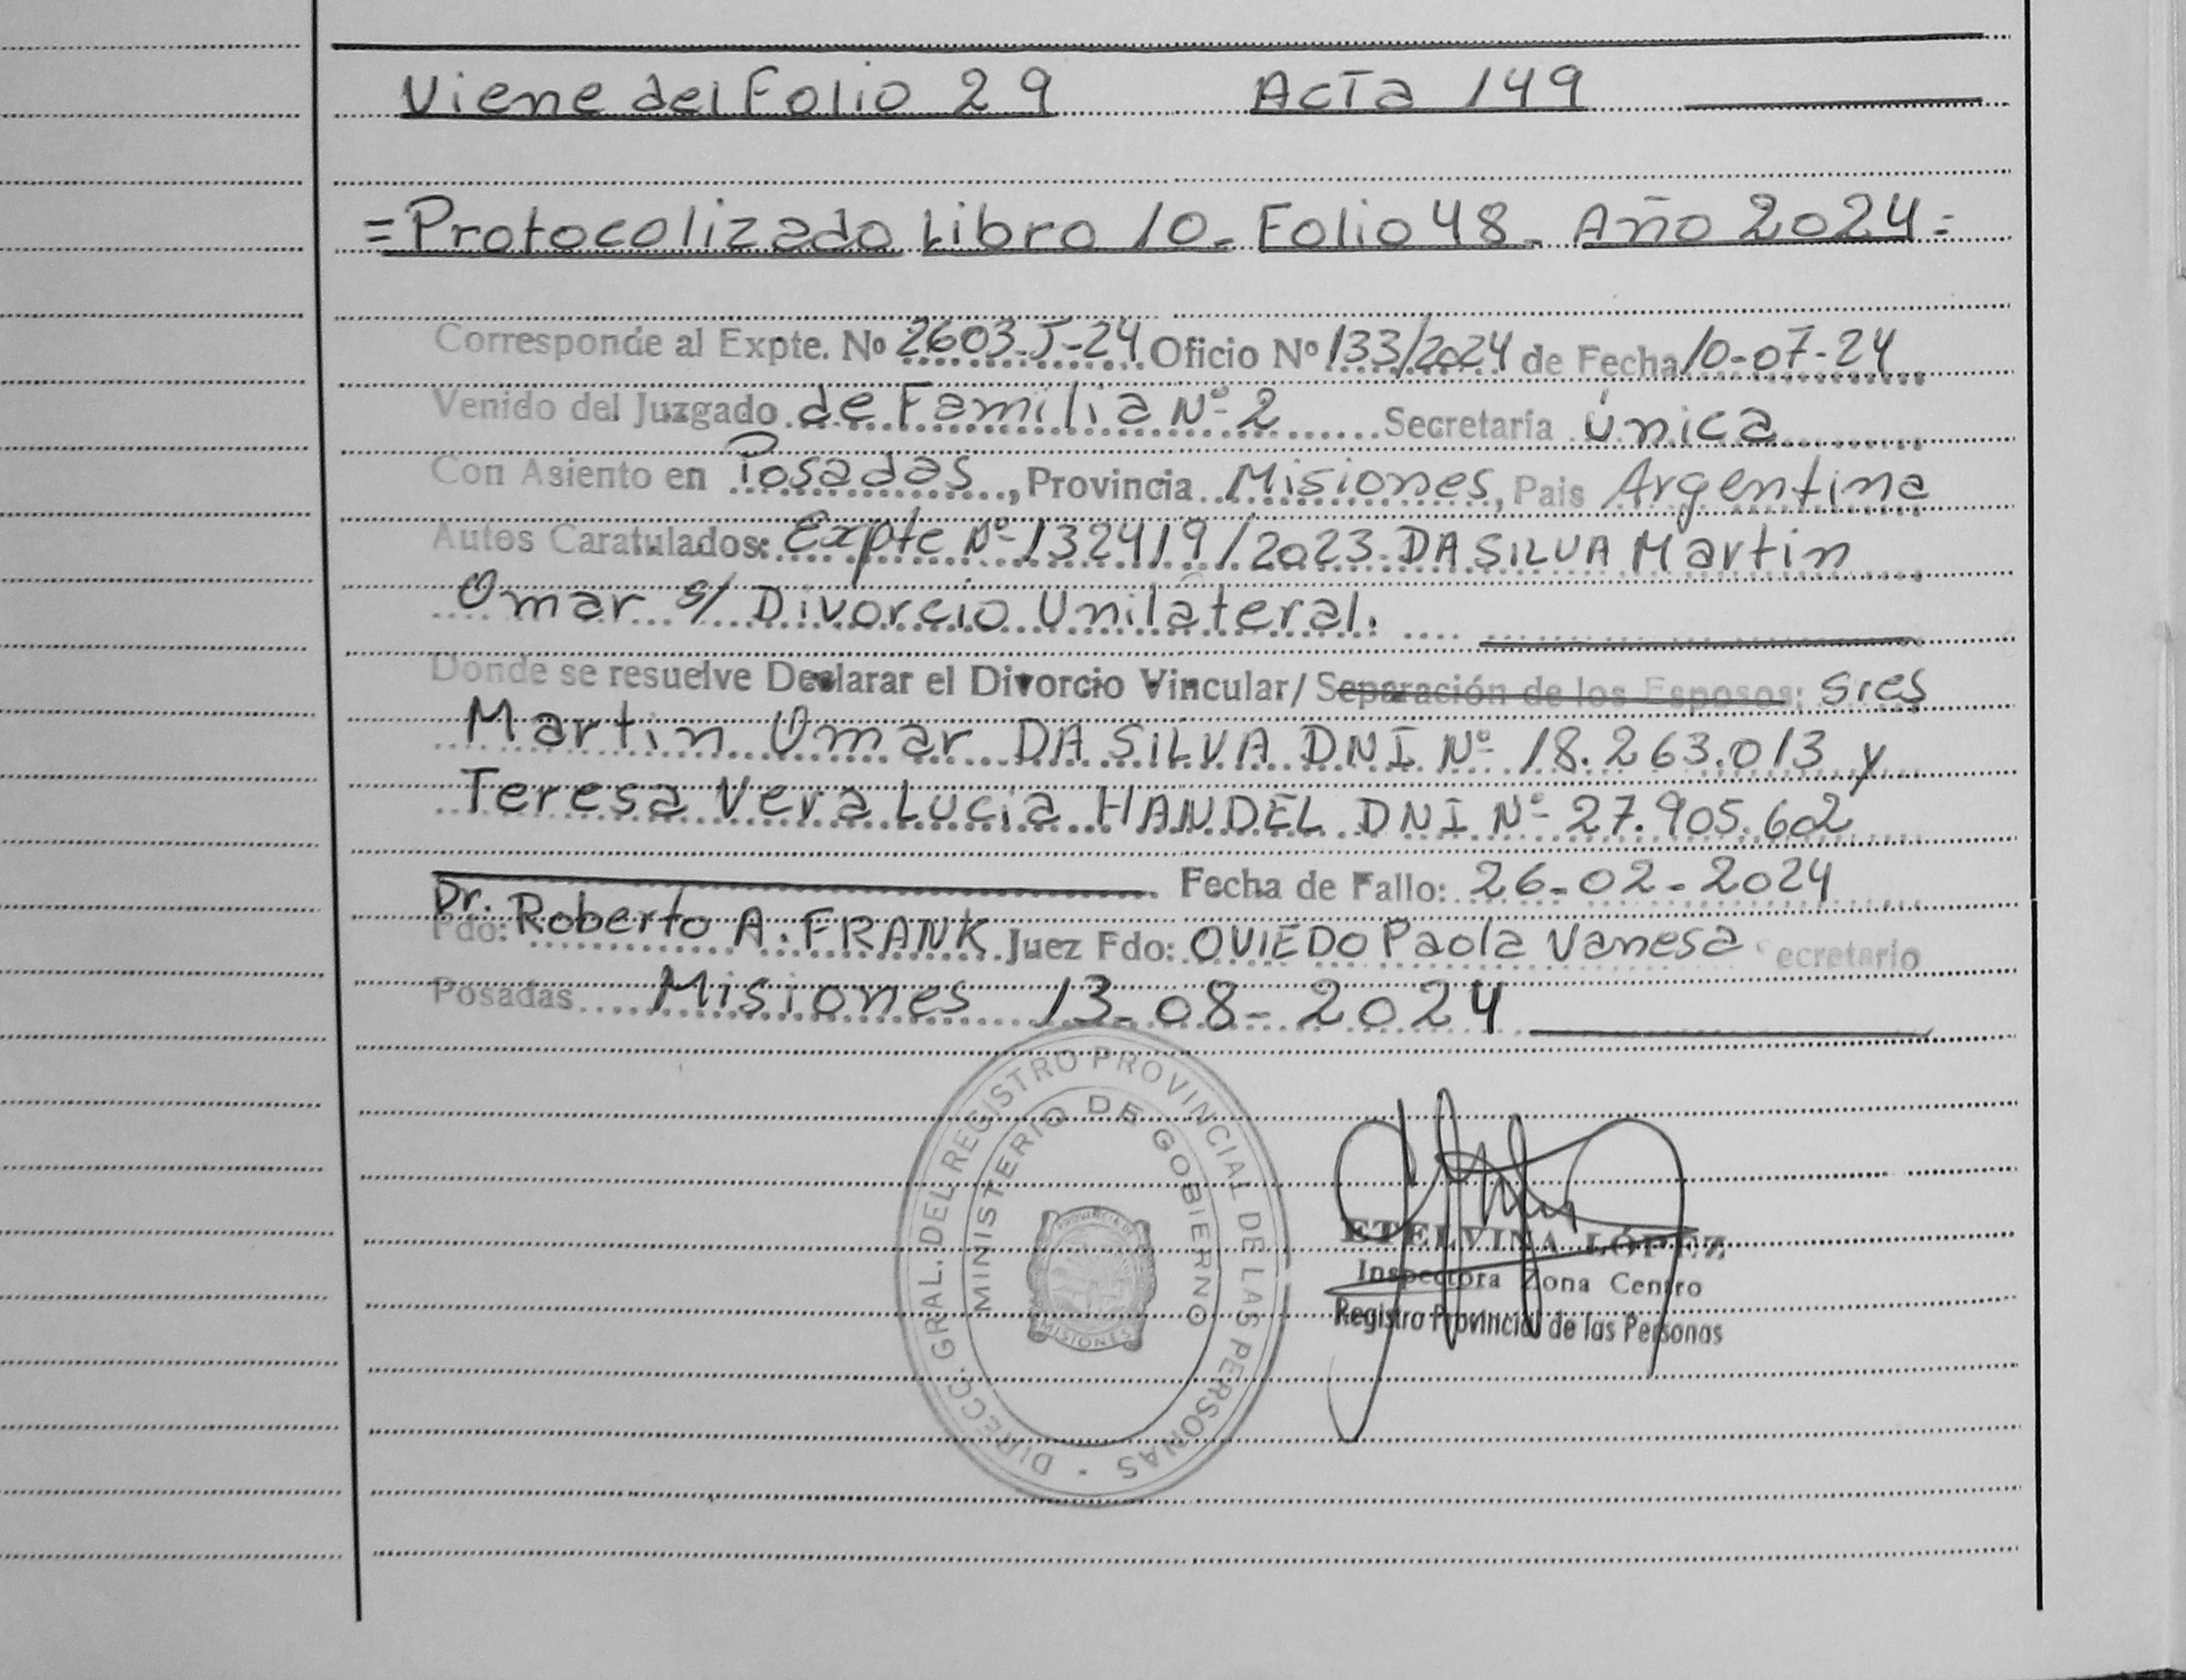 Viene del Folio 29 Acta 149
=Protocolizado Libro 10- Folio 48- Año 2024=
Corresponde al Expte. Nº 2603-J-24 Oficio Nº 133/2024 de Fecha 10-07-24
Venido del Juzgado de Familia Nº 2 Secretaría única
Con Asiento en Posadas, Provincia Misiones, Pais Argentina
Autos Caratulados: Expte Nº 132419/2023 DA SILVA Martin
Omar s/ Divorcio Unilateral.
Donde se resuelve Declarar el Divorcio Vincular/ Separación de los Esposos: Sres
Martin Omar DA SILVA DNI Nº 18.263.013 y
Teresa Vera Lucia HANDEL DNI Nº 27.905.602
Fecha de Fallo: 26-02-2024
Dr.
Fdo: Roberto A. FRANK Juez Fdo: OVIEDO Paola Vanesa Secretario
Posadas Misiones 13-08-2024
DIRECC. GRAL. DEL REGISTRO PROVINCIAL DE LAS PERSONAS
MINISTERIO DE GOBIERNO
PROVINCIA DE
MISIONES
ETELVINA LÓPEZ
Inspectora Zona Centro
Registro Provincial de las Personas